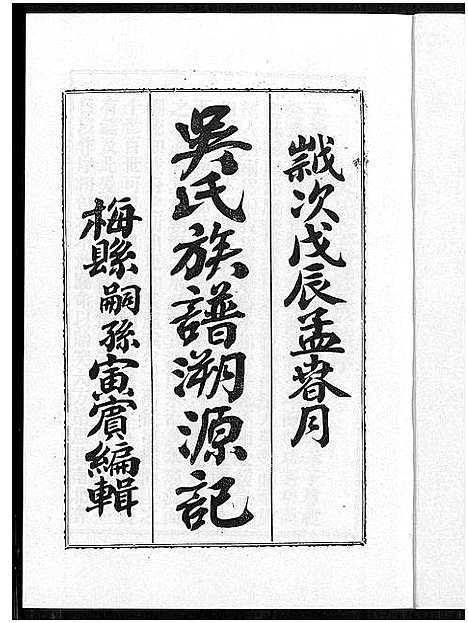 歲次戊辰孟春月
吳氏族譜溯源記
梅縣嗣孫寅賓編輯